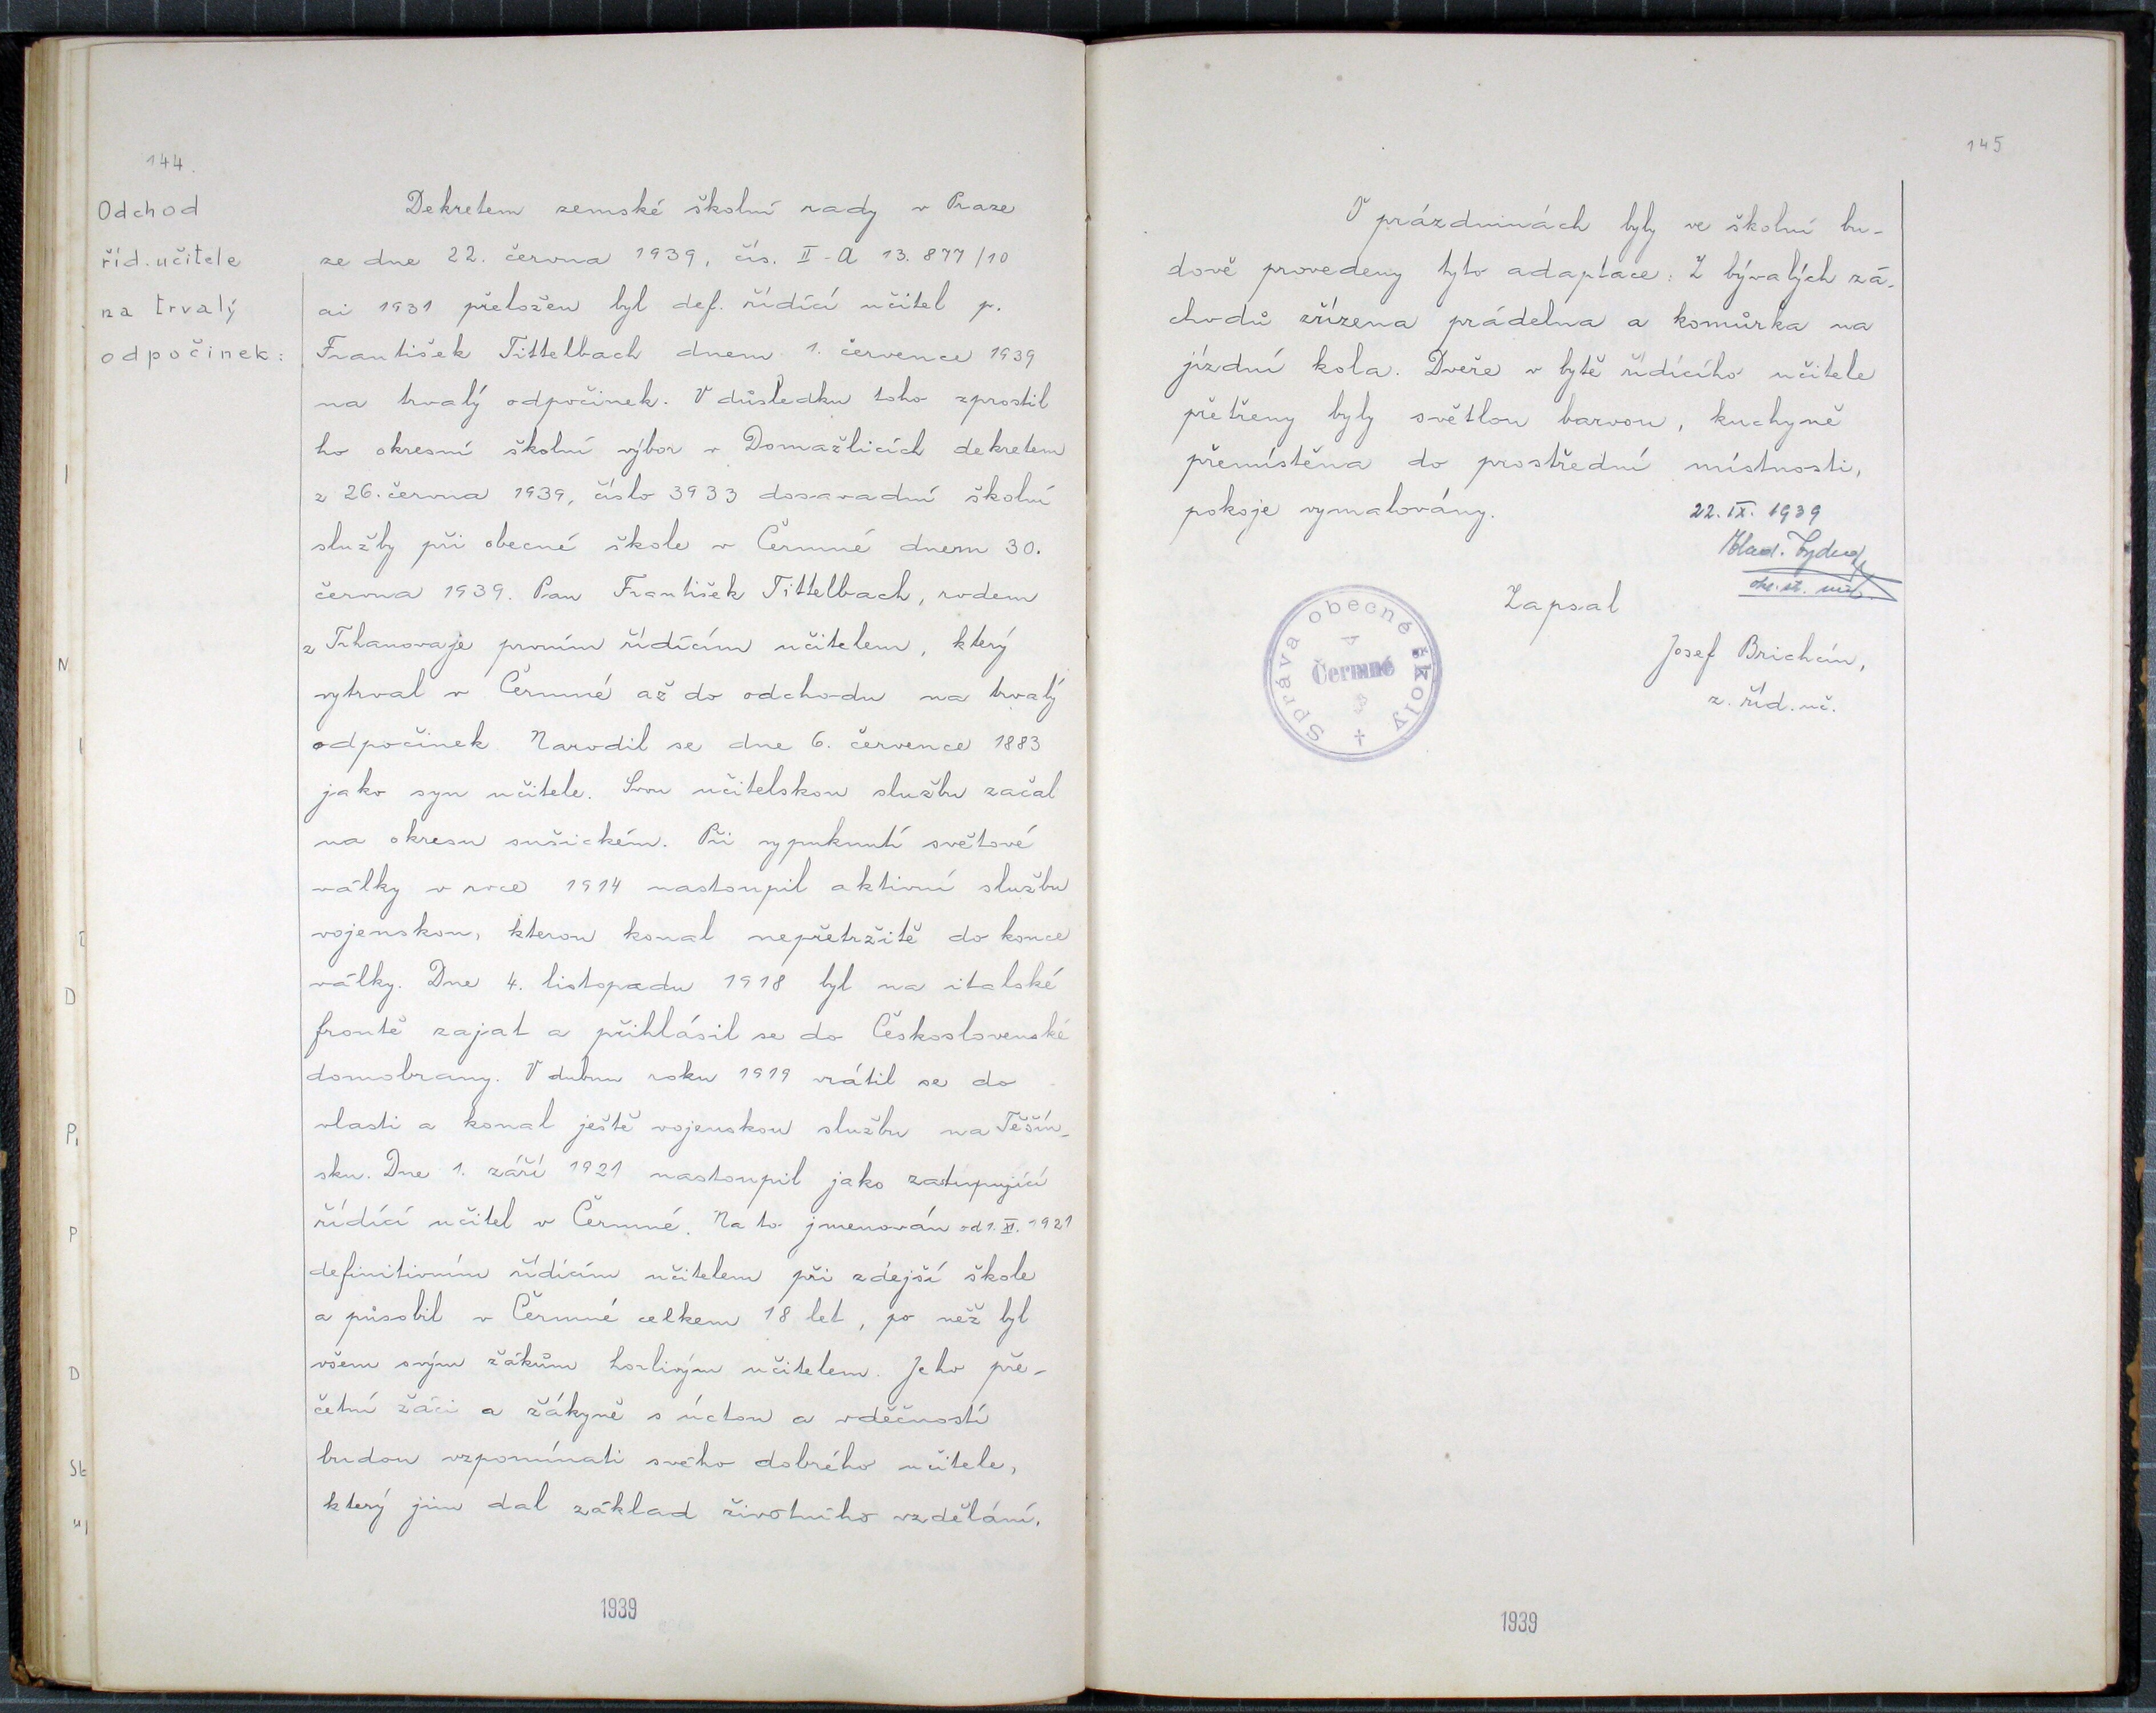 144.
Odchod
říd. učitele
na trvalý
odpočinek:
Dekretem zemské školní rady v Praze
ze dne 22. června 1939, čís. II-A 13.877/10
ai 1931 přeložen byl def. řídící učitel p.
František Tittelbach dnem 1. července 1939
na trvalý odpočinek. V důsledku toho zprostil
ho okresní školní výbor v Domažlicích dekretem
z 26. června 1939, číslo 3933 dosavadní školní
služby při obecné škole v Čermné dnem 30.
června 1939. Pan František Tittelbach, rodem
z Trhanova je prvním řídícím učitelem, který
vytrval v Čermné až do odchodu na trvalý
odpočinek Narodil se dne 6. července 1883
jako syn učitele. Svou učitelskou službu začal
na okresu sušickém. Při vypuknutí světové
války v roce 1914 nastoupil aktivní službu
vojenskou, kterou konal nepřetržitě do konce
války. Dne 4. listopadu 1918 byl na italské
frontě zajat a přihlásil se do Československé
domobrany. V dubnu roku 1919 vrátil se do
vlasti a konal ještě vojenskou službu na Těšín-
sku. Dne 1. září 1921 nastoupil jako zastupující
řídící učitel v Čermné. Na to jmenován od 1. XI. 1921
definitivním řídícím učitelem při zdejší škole
a působil v Čermné celkem 18 let, po něž byl
všem svým žákům horlivým učitelem. Jeho pře-
četní žáci a žákyně s úctou a vděčností
budou vzpomínati svého dobrého učitele,
který jim dal základ životního vzdělání.
1939
145
V prázdninách byly ve školní bu-
dově provedeny tyto adaptace: Z bývalých zá-
chodů zřízena prádelna a komůrka na
jízdní kola. Dveře v bytě řídícího učitele
přetřeny byly světlou barvou, kuchyně
přemístěna do prostřední místnosti,
pokoje vymalovány.
22. IX. 1939
Zapsal
Josef Brichcín,
z. říd. uč.
Správa obecné školy
v
Čermné
1939